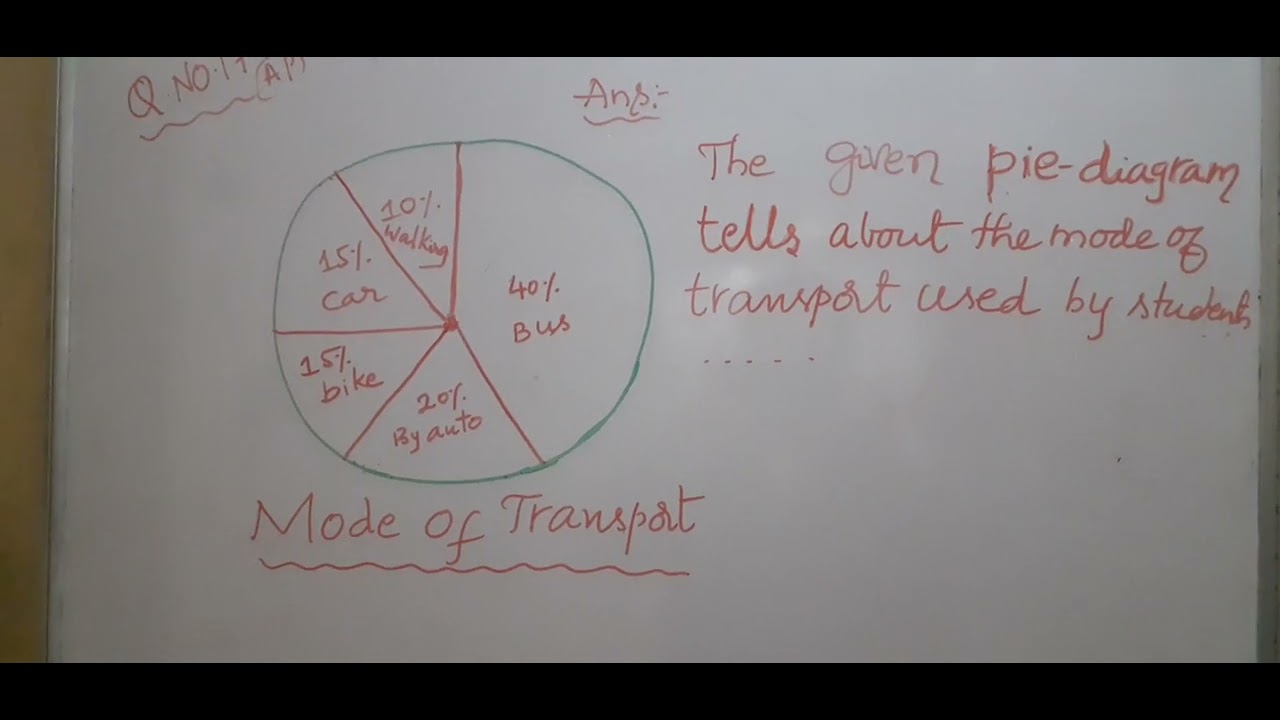 Q.NO:17
Ans:-
The given pie-diagram
tells about the mode of
transport used by students
.....
10%
Walking
15%
car
40%
Bus
15%
bike
20%
By auto
Mode of Transport